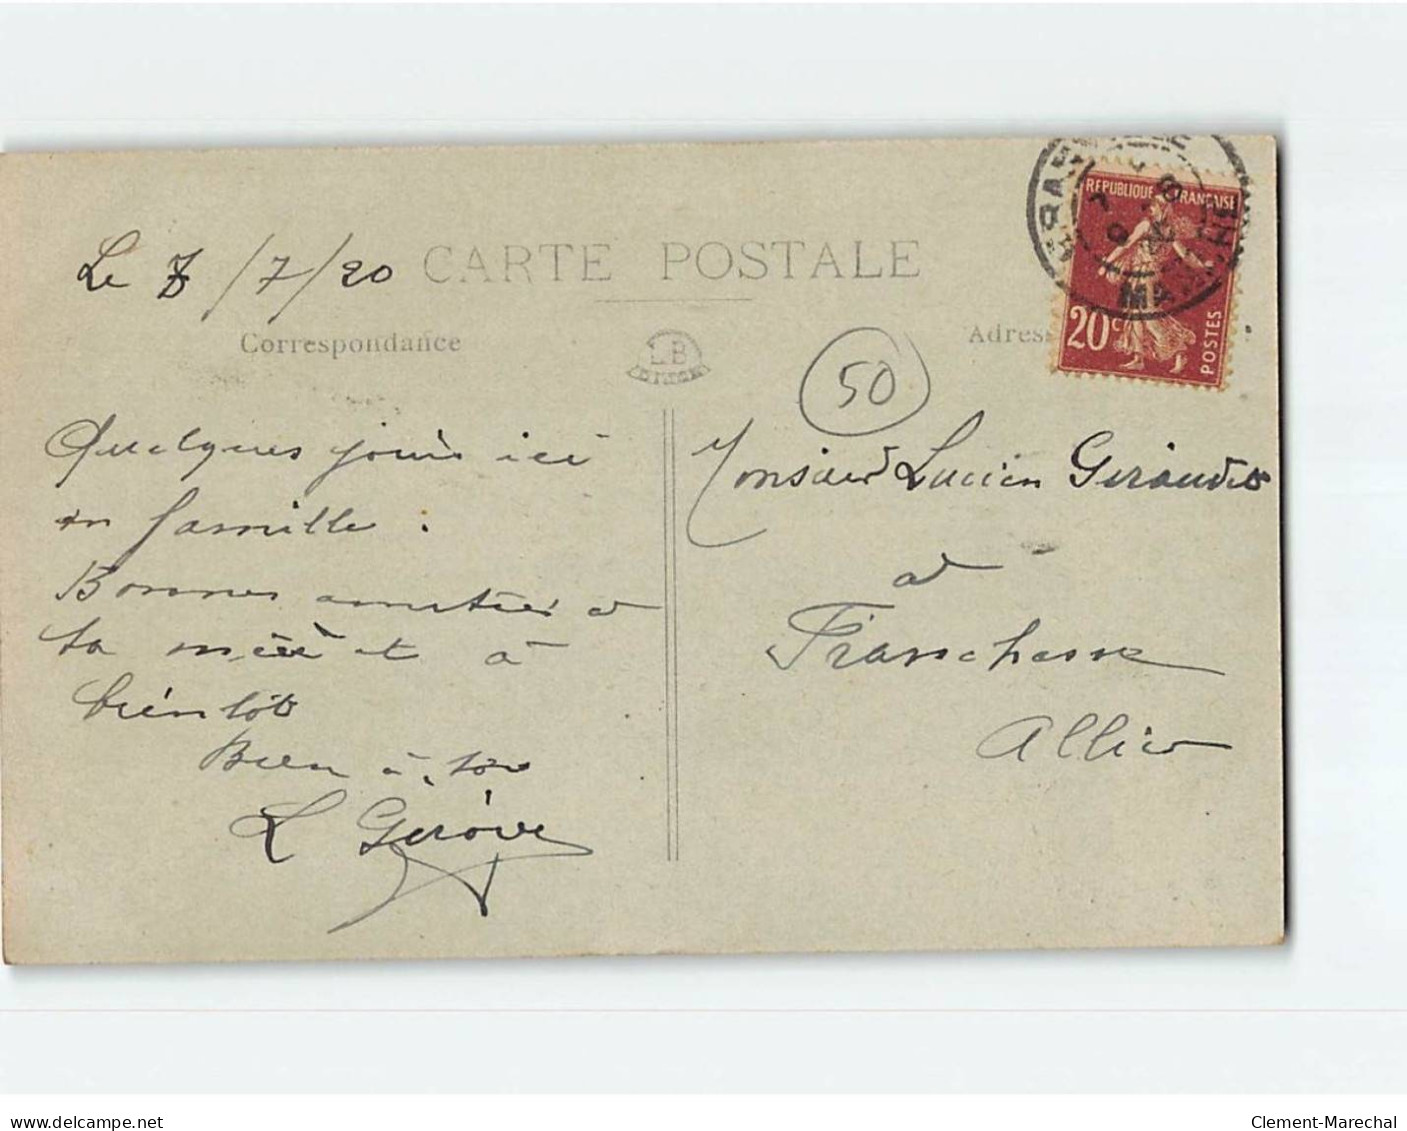 Le 8/7/20
CARTE POSTALE
Correspondance
LB
Adress
REPUBLIQUE FRANÇAISE
20c
POSTES
GRANVILLE
MANCHE
50
Quelques jours ici
en famille.
Bonnes amitiés à
ta mère et à
bientôt
Bien à toi
L
Monsieur Lucien
à
Franchesse
Allier
delcampe.net
Clement-Marechal